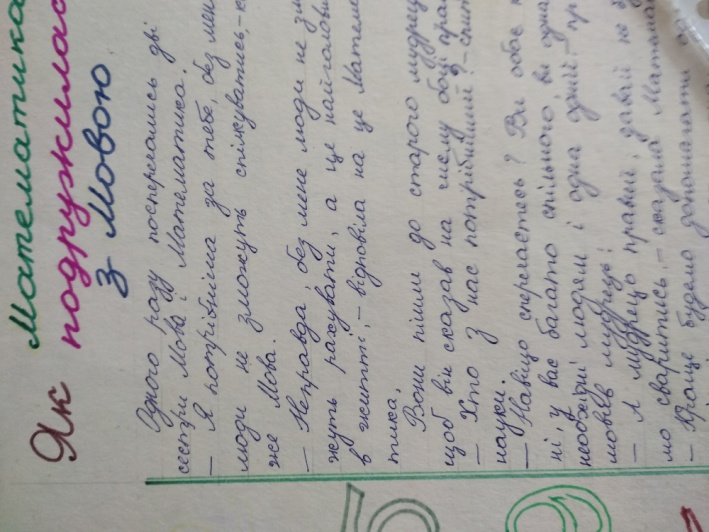 Як Математика
подружилас
з Мовою
Одного разу посперечались дві
сестри Мова і Математика.
— Я потрібніша за тебе, без мен
люди не зможуть спілкуватись,- к
же Мова.
— Неправда, без мене люди не зм
жуть рахувати, а це найголовн
в житті,- відповіла на це Матема
тика.
Вони пішли до старого мудрец
щоб він сказав на чиєму боці прав
— Хто з нас потрібніший? - спит
науки.
— Навіщо сперечаєтесь? Ви обоє
ні, у вас багато спільного, ви одна
необхідні людям і одна одній,- пр
мовив мудрець!
— А мудрець правий, давай не б
мо сваритись,- сказала Математ
— Краще будемо допомагати од
5